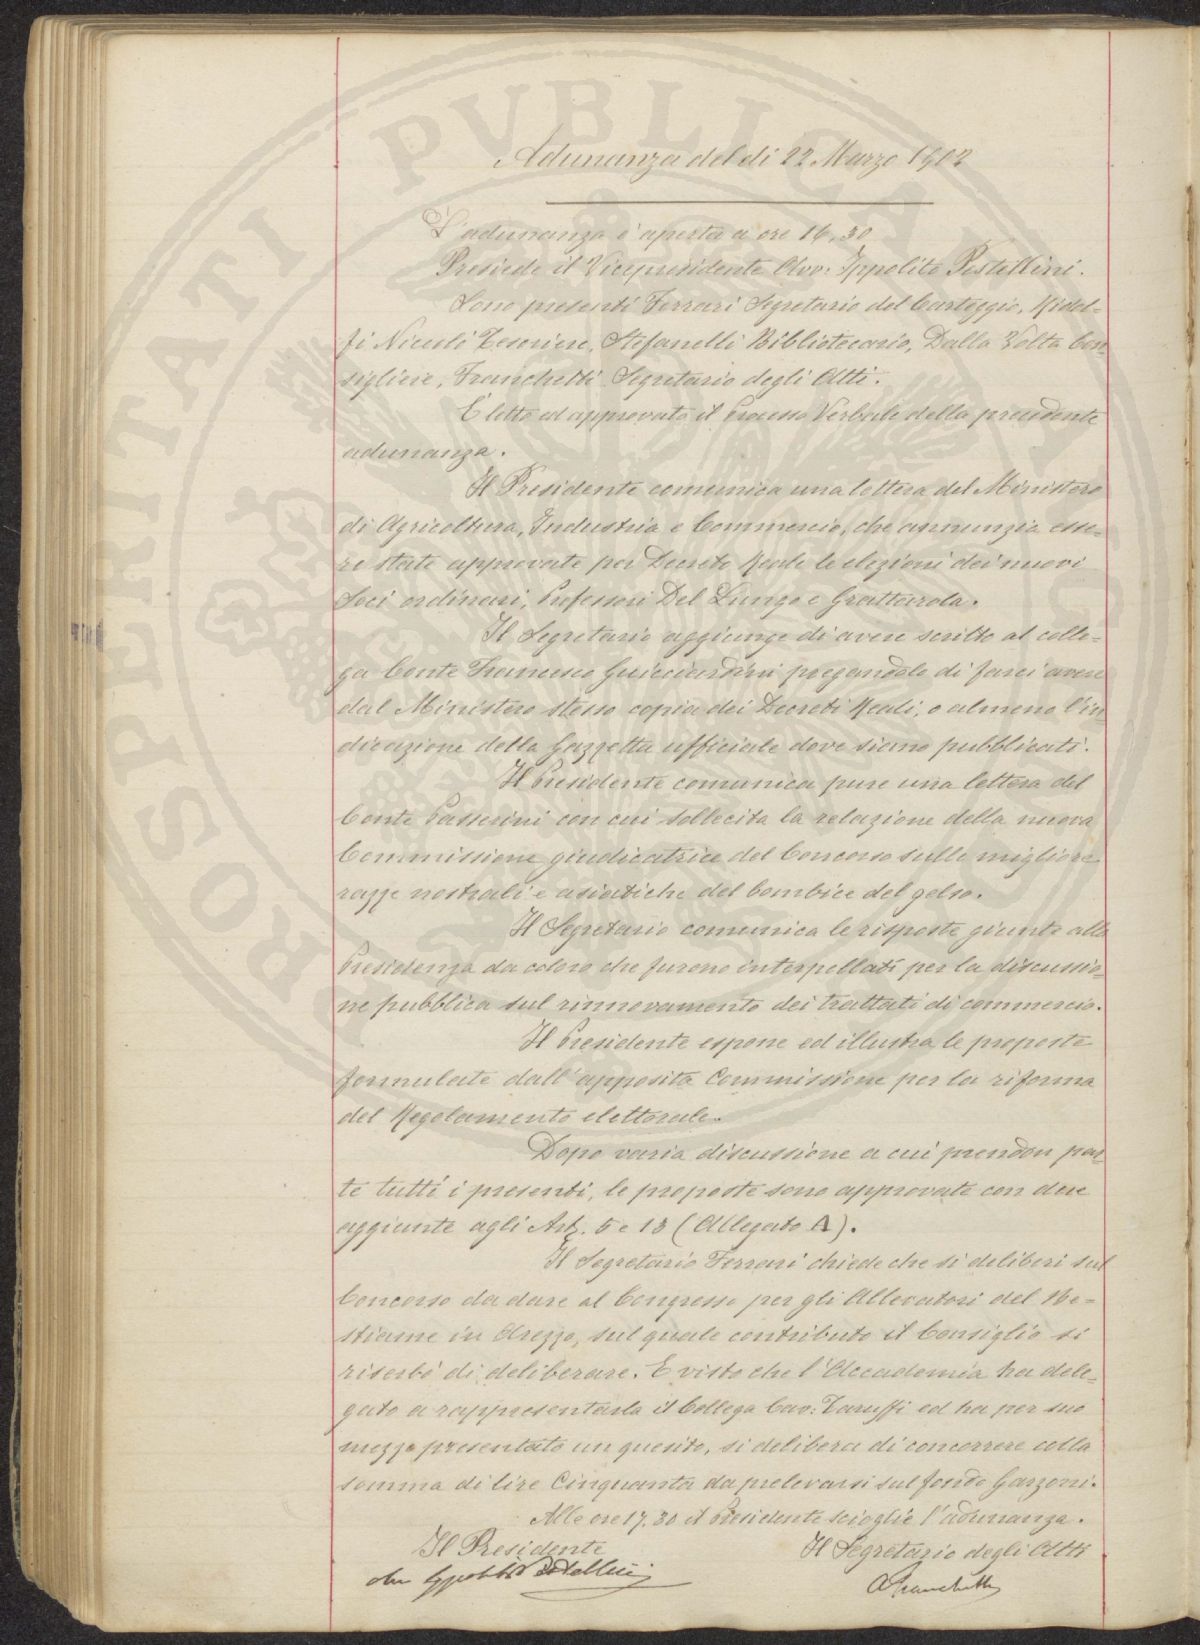 Adunanza del dì 22 Marzo 1902
L'adunanza è aperta a ore 16,30
Presiede il Vicepresidente Avv: Ippolito Pestellini.
Sono presenti Ferrari Segretario del Carteggio, Ridol-
fi Niccolò Tesoriere, Stefanelli Bibliotecario, Dalla Volta Con-
sigliere, Franchetti Segretario degli Atti.
È letto ed approvato il Processo Verbale della precedente
adunanza.
Il Presidente comunica una lettera del Ministero
di Agricoltura, Industria e Commercio, che annunzia esse-
re state approvate per Decreto Reale le elezioni dei nuovi
Soci ordinari, Professori Del Lungo e Grattarola.
Il Segretario aggiunge di avere scritto al colle-
ga Conte Francesco Guicciardini pregandolo di farci avere
dal Ministero stesso copia dei Decreti Reali, o almeno l'in-
dicazione della Gazzetta ufficiale dove siano pubblicati.
Il Presidente comunica pure una lettera del
Conte Passerini con cui sollecita la relazione della nuova
Commissione giudicatrice del Concorso sulle migliori
razze nostrali e asiatiche del bombice del gelso.
Il Segretario comunica le risposte giunte alla
Presidenza da coloro che furono interpellati per la discussio-
ne pubblica sul rinnovamento dei trattati di commercio.
Il Presidente espone ed illustra le proposte
formulate dall'apposita Commissione per la riforma
del Regolamento elettorale.
Dopo varia discussione a cui prendon par-
te tutti i presenti, le proposte sono approvate con due
aggiunte agli Art. 5 e 13 (Allegato A).
Il Segretario Ferrari chiede che si deliberi sul
Concorso da dare al Congresso per gli Allevatori del Be-
stiame in Arezzo, sul quale contributo il Consiglio si
riserbò di deliberare. E visto che l'Accademia ha dele-
gato a rappresentarla il Collega Cav: Taruffi ed ha per suo
mezzo presentato un quesito, si delibera di concorrere colla
somma di lire Cinquanta da prelevarsi sul fondo Garzoni.
Alle ore 17.30 il Presidente scioglie l'adunanza.
Il Presidente
Il Segretario degli Atti
Avv Ippolito Pestellini
A Franchetti
PROSPERITATI PVBLICAE